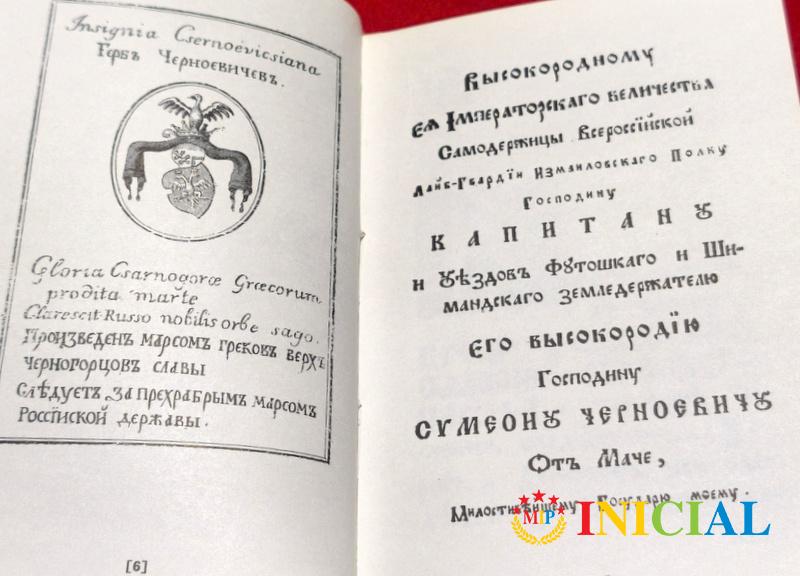 Insignia Csernoevicsiana
Гербъ Черноевичевъ.
Gloria Csarnogoræ Græcorum
prodita marte
Clarescit Russo nobilis orbe sago.
Произведенъ марсомъ грековъ верхъ
черногорцовъ славы
Слѣдуетъ за прехрабрымъ марсомъ
Россїйской державы.
[6]
Высокородному
Ея Імператорскаго величества
Самодержицы Всероссїйской
Лайб-Гвардїи Измаиловскаго Полку
Господину
КАПИТАНꙋ
и Уѣздовъ Футошкаго и Ши-
мандскаго Земледержателю
Его высокородїю
Господину
Сѵмеонꙋ Черноевичꙋ
Отъ Маче,
Милостивѣйшему Государю моему.
MIP INICIAL